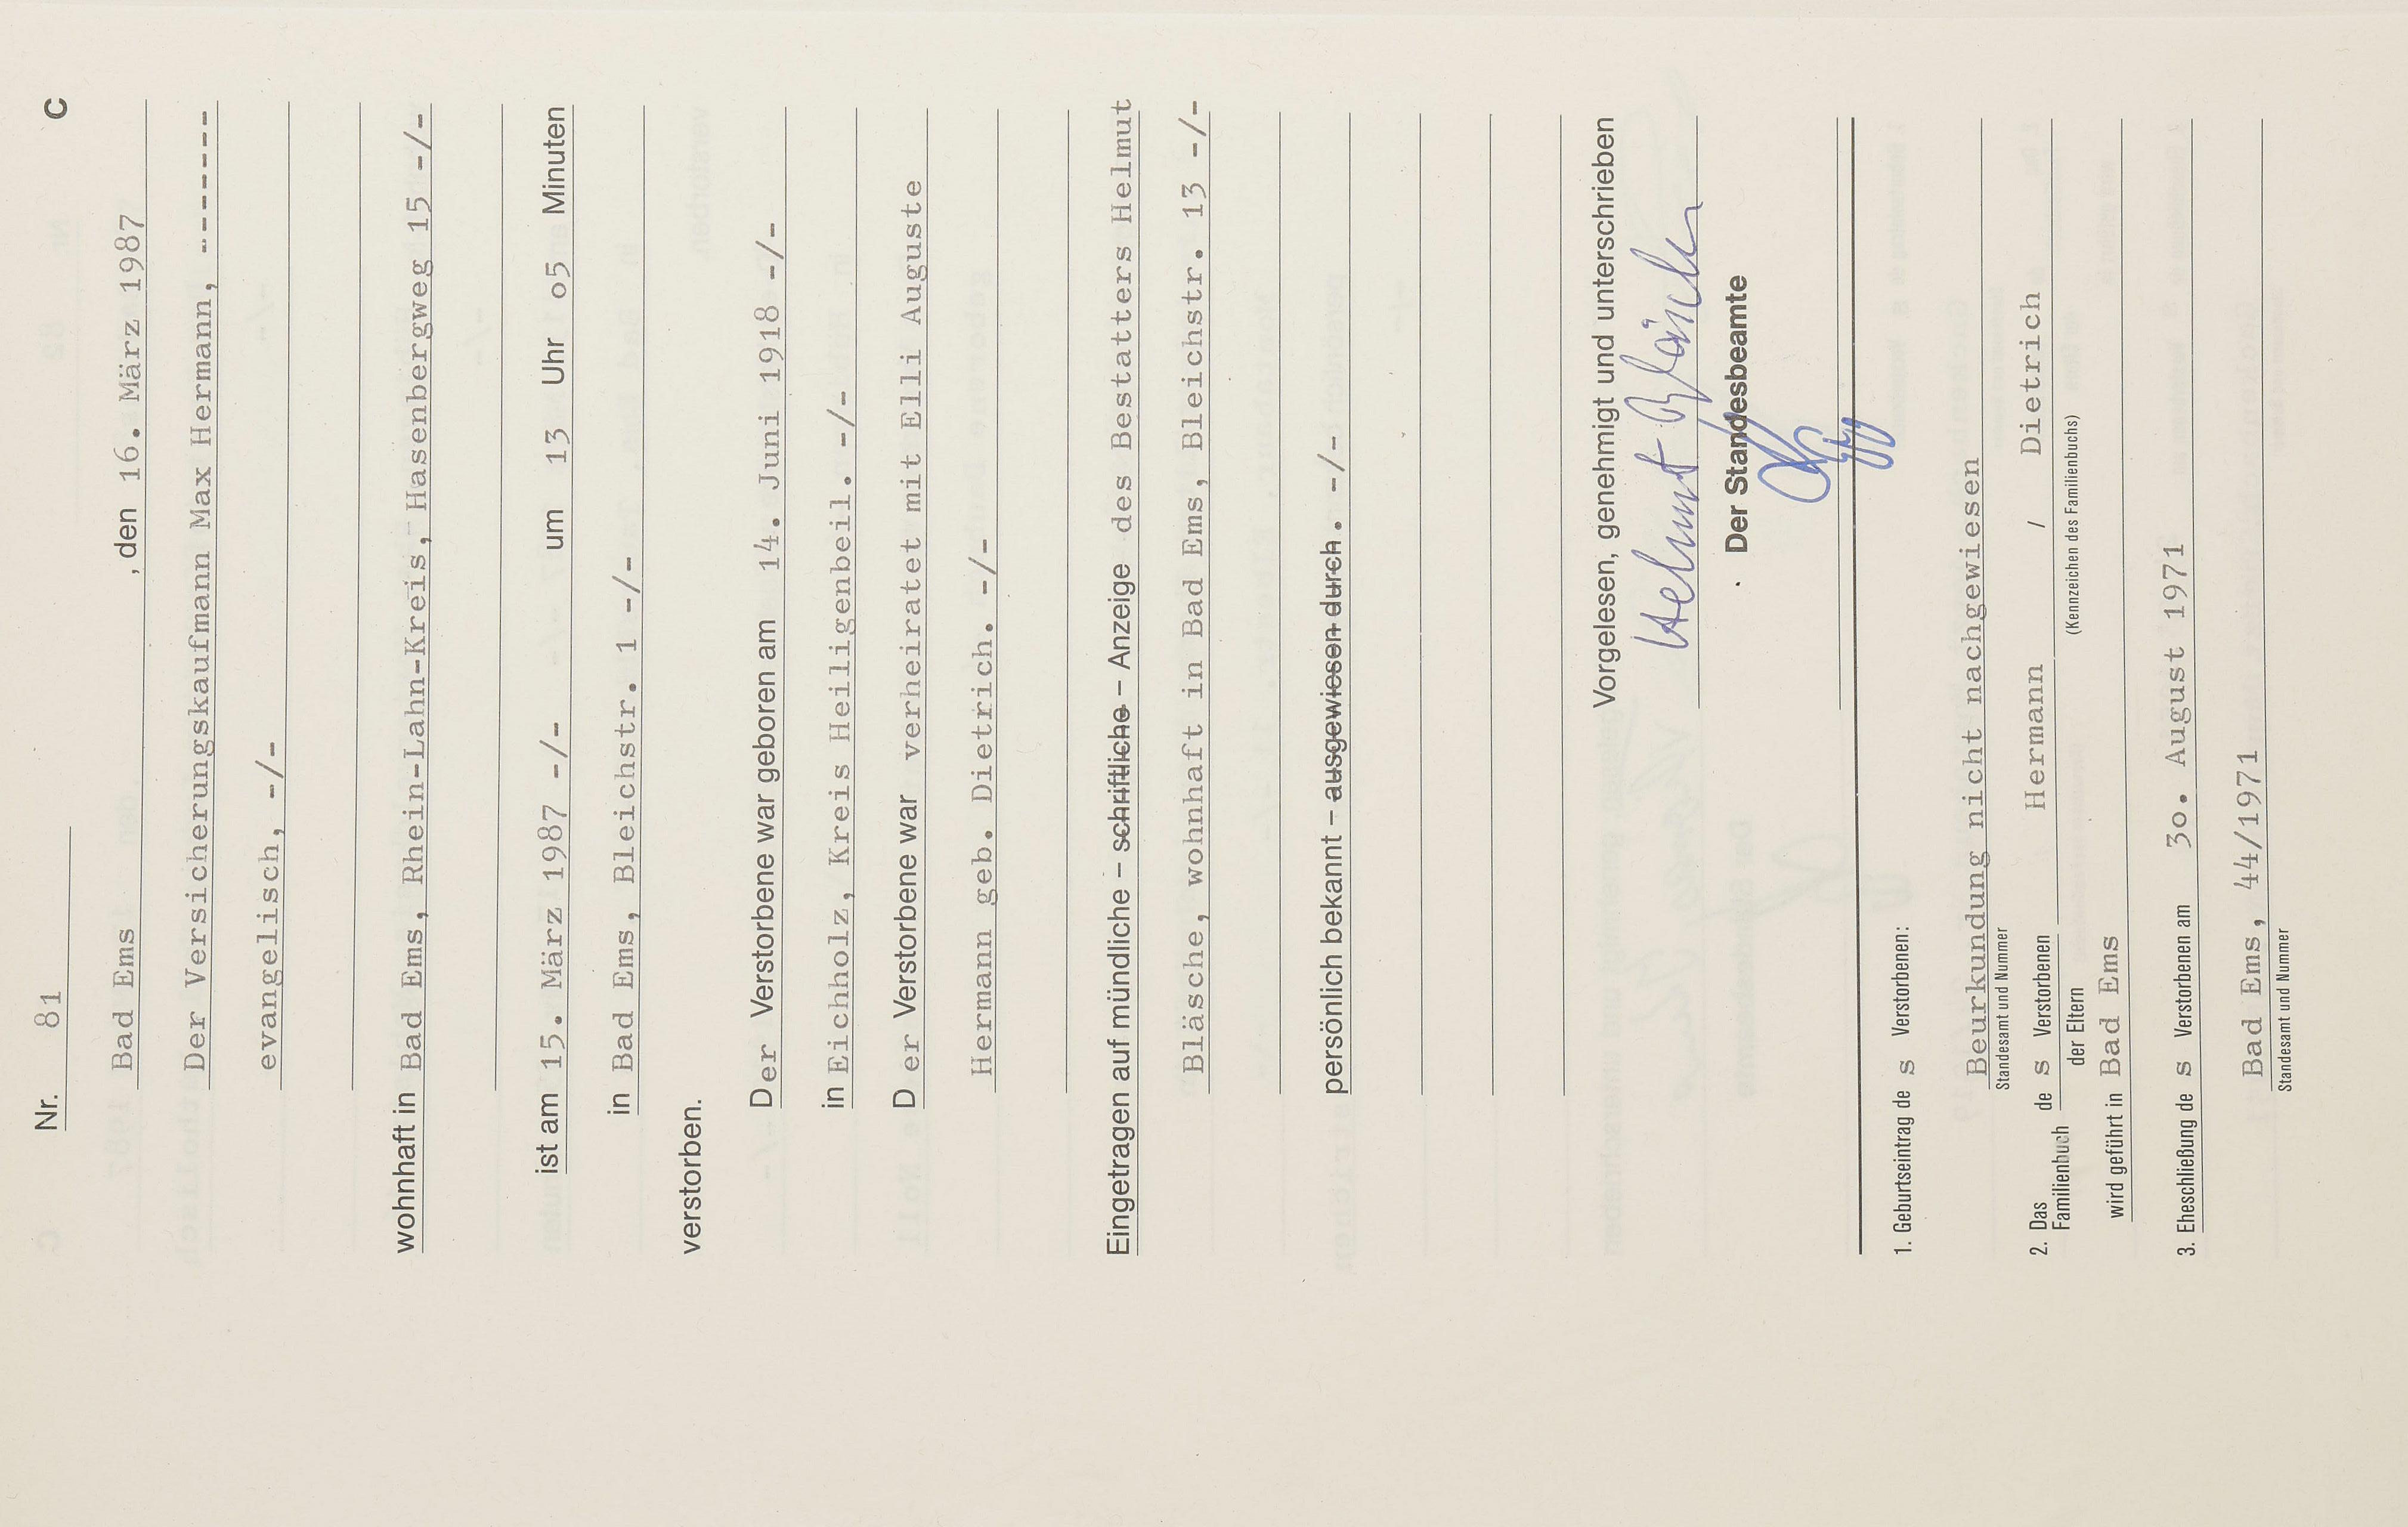 Nr. 81 C
Bad Ems , den 16. März 1987
Der Versicherungskaufmann Max Hermann, -------
evangelisch, -/-
wohnhaft in Bad Ems, Rhein-Lahn-Kreis, Hasenbergweg 15 -/-
ist am 15. März 1987 -/- um 13 Uhr o5 Minuten
in Bad Ems, Bleichstr. 1 -/-
verstorben.
Der Verstorbene war geboren am 14. Juni 1918 -/-
in Eichholz, Kreis Heiligenbeil. -/-
Der Verstorbene war verheiratet mit Elli Auguste
Hermann geb. Dietrich. -/-
Eingetragen auf mündliche – schriftliche – Anzeige des Bestatters Helmut
Bläsche, wohnhaft in Bad Ems, Bleichstr. 13 -/-
persönlich bekannt – ausgewiesen durch . -/-
Vorgelesen, genehmigt und unterschrieben
Helmut Bläsche
Der Standesbeamte
1. Geburtseintrag de s Verstorbenen:
Beurkundung nicht nachgewiesen
Standesamt und Nummer
2. Das Familienbuch de s Verstorbenen Hermann / Dietrich
der Eltern (Kennzeichen des Familienbuchs)
wird geführt in Bad Ems
3. Eheschließung de s Verstorbenen am 3o. August 1971
Bad Ems, 44/1971
Standesamt und Nummer